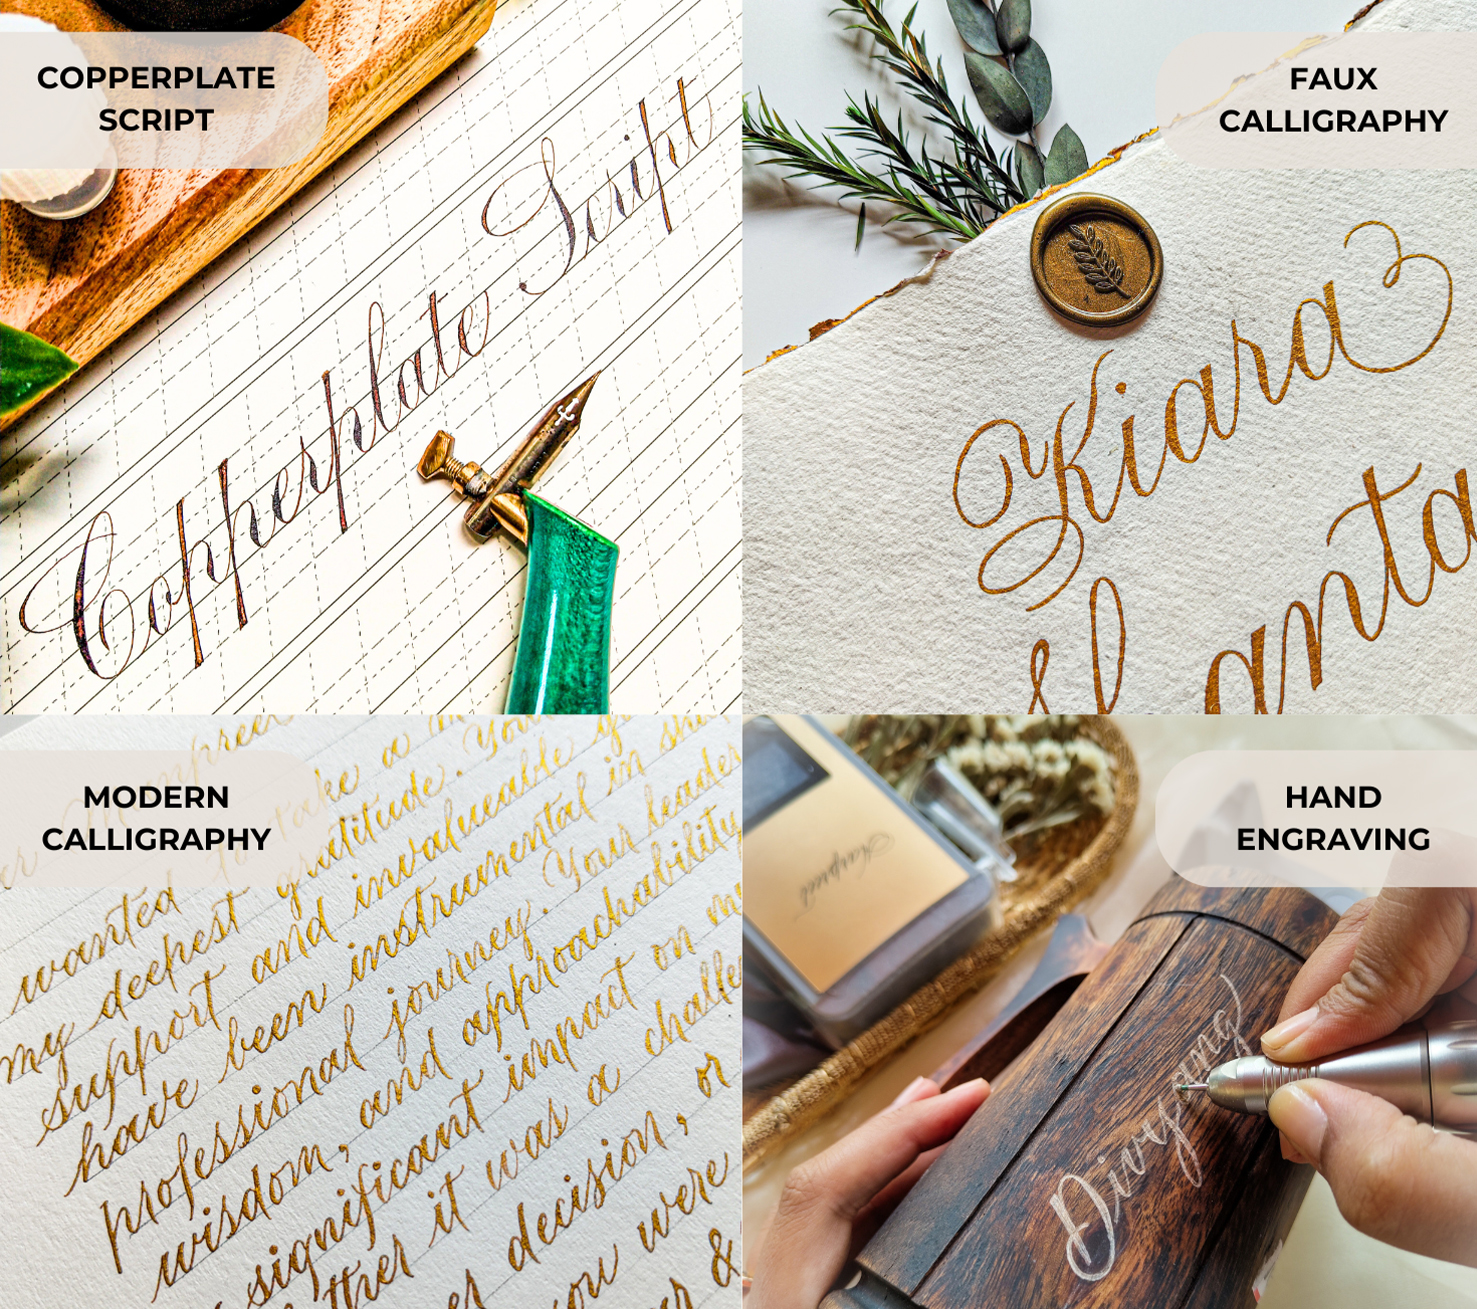 COPPERPLATE
SCRIPT
Copperplate Script
FAUX
CALLIGRAPHY
Kiara
MODERN
CALLIGRAPHY
wanted to take a
my deepest gratitude. You
support and invalueable
have been instrumental in
professional journey. Your
wisdom, and approachability
significant impact on my
it was a
decision, or
you were
&
HAND
ENGRAVING
Harpreet
Divyang